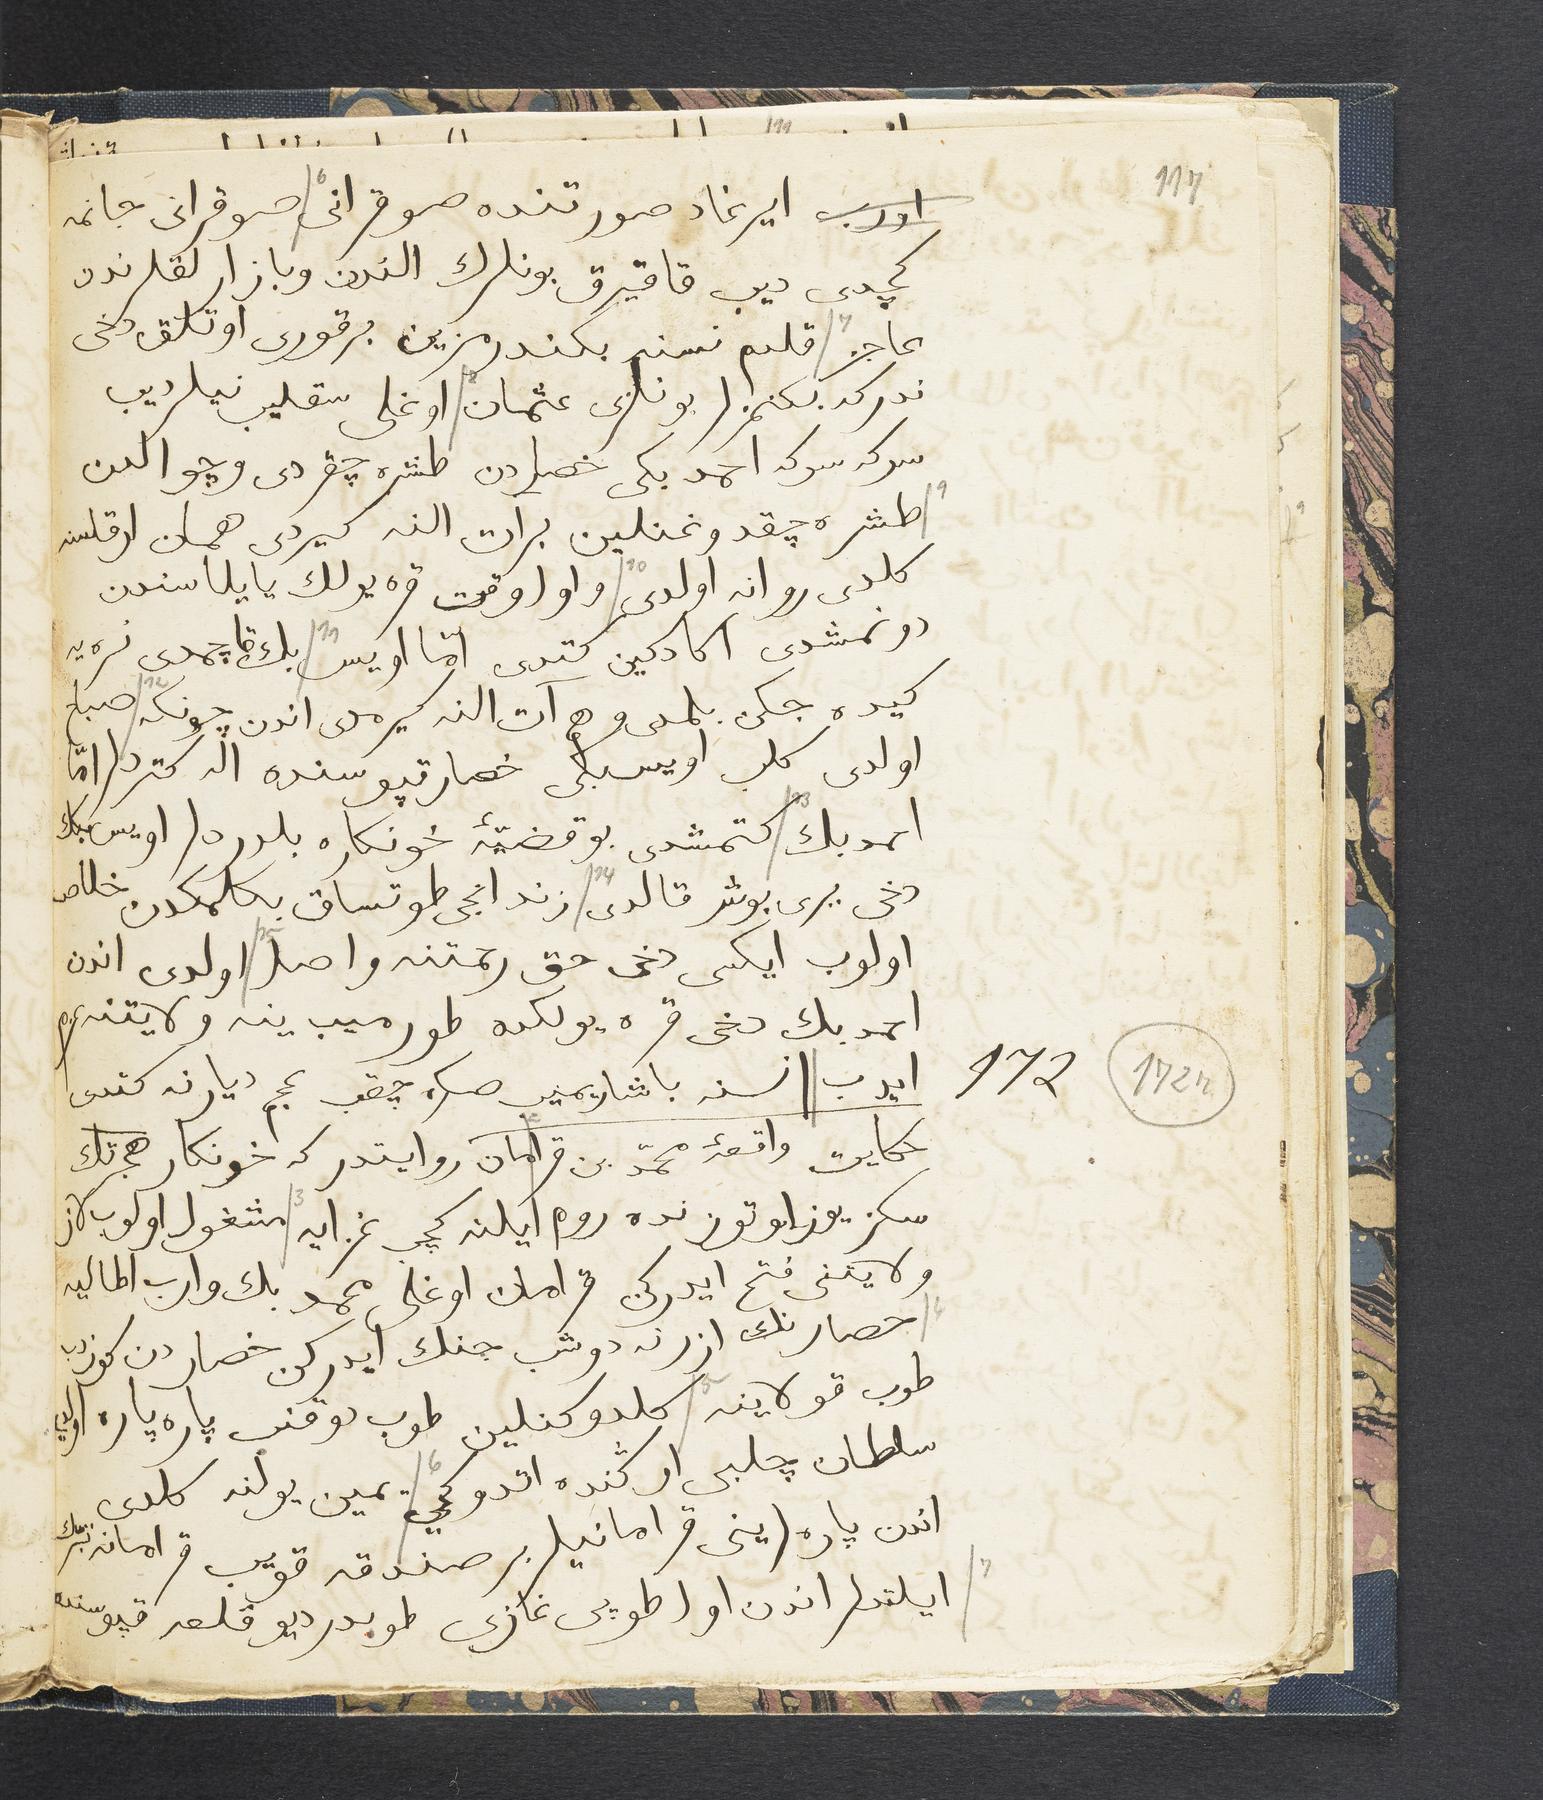 117
اورب ایرغاد صورتنده صوقرانی /6 صوقرانی جانمه
کچدی دیب قاقیرق بونلرك الندن وبازارلقلرندن
عاجز /7 قلدم نسنه بکندرمزین برقوری اوتلق دخی
ندرکه بکنمزلر بونلری عثمان /8 اوغلی سقلیب نیلر دیب
سرکه سرکه احمد بکی خصاردن طشره چقردی وچو الدن
/9 طشره چقدوغنلین برات النه کیردی همان ارقلسنه
کلدی روانه اولدی /10 واول وقت قره یولك یایلاسندن
دونمشدی اکادکین کتدی امّا اویس /11 بك قاچمدی نره یه
کیده جکن بلمدی وهم آت النه کیرمدی اندن چونکه /12 صباح
اولدی کلب اویس بکی خصار قپوسنده اله کتردلر امّا
احمد بك /13 کتمشدی بو قضیّهٔ خونکاره بلدردلر اویس بك
دخی یری بوش قالدی /14 زندانجی طوتساق بکلمکدن خلاص
اولوب ایکسی دخی حق رحمتنه واصل /15 اولدی اندن
احمد بك دخی قره یولکده طورمیب ینه ولایتنه عزم
ایدب // نسنه باشاریمیب صکره چقب عجم دیارنه کتدی
172 172r
حکایت واقعهٔ محمّد بن قرامان روایتدرکه خونکار هجرتك
سکز یوز اوتوزنده روم ایلنه کچب غزایه /3 مشغول اولوب لاز
ولایتنی فتح ایدرکن قرامان اوغلی محمد بك وارب اطالیه
/4 حصارنك ازرنه دوشب جنك ایدرکن خصاردن کوزدب
طوب قولاینه /5 کلدوکنلین طوب طوقنب پاره پاره اولدی
سلطان چلبی ارکنده اتدوکی /6 یمین یولنه کلدی
اندن پاره لرینی قرامانیلر بر صندقه قویب قرامانه تیزك
/7 ایلتدلر اندن اول طوپی غازی طوبدر دیو قلعه قپوسنده